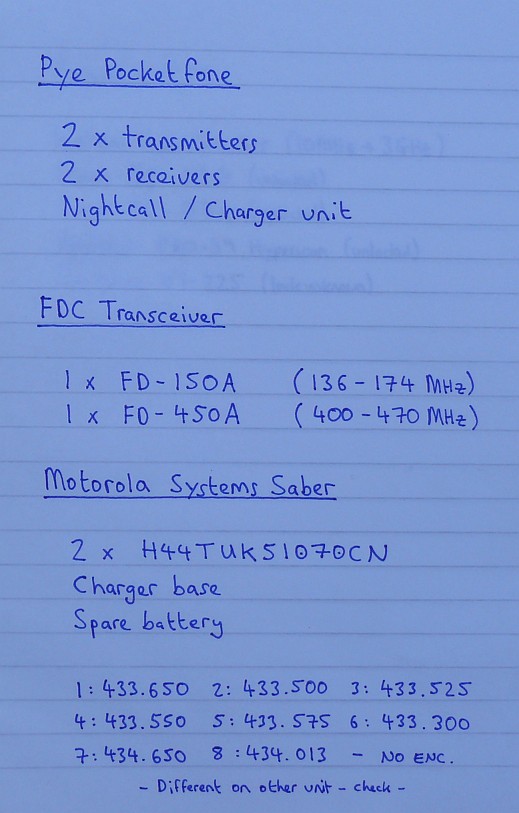 Pye Pocketfone
2 x transmitters
2 x receivers
Nightcall / Charger unit
FDC Transceiver
1 x FD-150A (136-174 MHz)
1 x FD-450A (400-470 MHz)
Motorola Systems Saber
2 x H44TUK51070CN
Charger base
Spare battery
1: 433.650 2: 433.500 3: 433.525
4: 433.550 5: 433.575 6: 433.300
7: 434.650 8: 434.013 - NO ENC.
- Different on other unit - check -